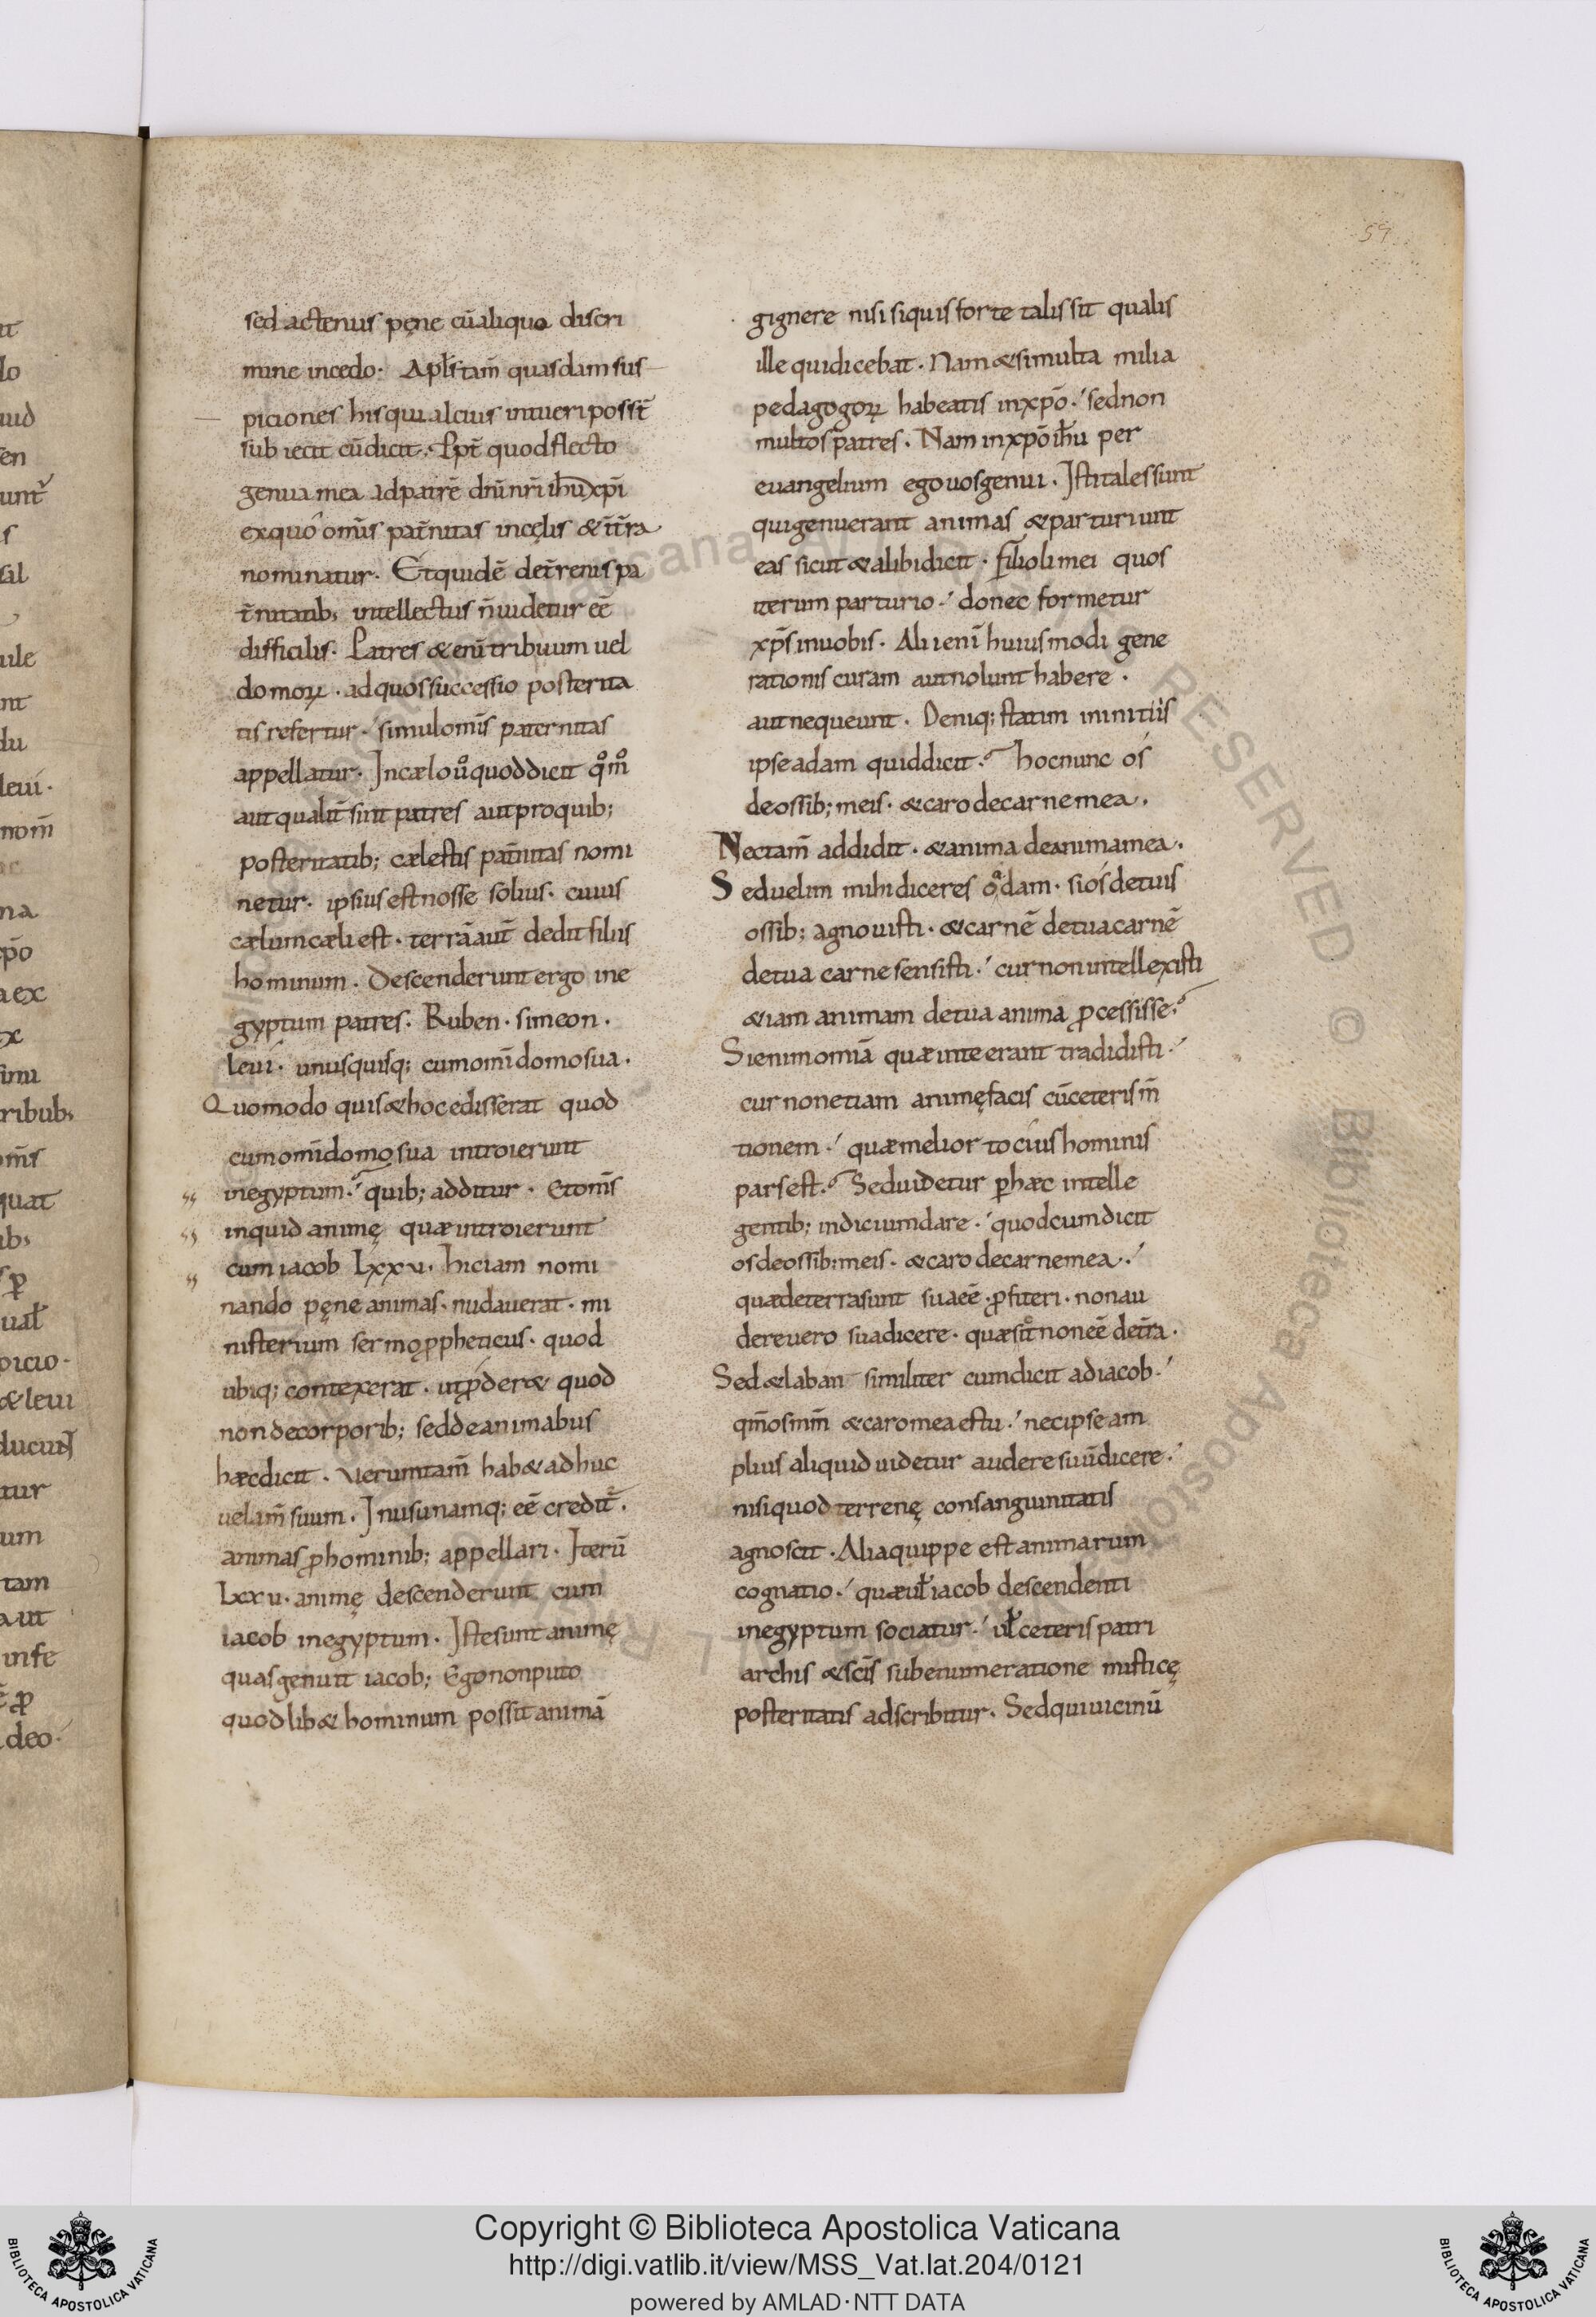 59
sed actenus pęne cū aliquo discri
mine incedo: Apłs tam̄ quasdam sus
piciones his qui alcius intueri posst̄
subiecit cū dicit. Ppt̄ quod flecto
genua mea ad patrē dn̄i nr̄i ih̄u xp̄i
ex quo om̄is pat̄nitas in cęlis & in t̄ra
nominatur. Et quidē de t̄renis pa
t̄nitatib; intellectus n̄ uidetur eē
difficilis. Patres & eni̅ tribuum uel
domoꝝ. ad quos successio posterita
tis refertur. simul om̄is paternitas
appellatur. In cælo ů quod dicit qm̊
aut qualit̄ sint patres aut pro quib;
posteritatib; cælestis pat̄nitas nomi
netur. ipsius est nosse solius. cuius
cælum cæli est. terrā aut̄ dedit filiis
hominum. Descenderunt ergo in e
gyptum patres. Ruben. simeon.
leui. unusquisq; cum omī domo sua.
Quomodo quis & hoc edisserat quod
cum omī domo sua introierunt
in egyptum. quib; additur. Et om̄s
inquid animę quæ introierunt
cum iacob Lxxu. Hic iam nomi
nando pęne animas. nudauerat. mi
nisterium sermo ꝓpheticus. quod
ubiq; contexerat. ut p̄der& quod
non de corporib; sed de animabus
hæc dicit. Uerumtam̄ hab& adhuc
uelam̄ suum. In usu namq; eē credit̄.
animas ꝓ hominib; appellari. Iterū
Lxxu. animę descenderunt cum
iacob in egyptum. Iste sunt animę
quas genuit iacob; Ego non puto
quodlib& hominum possit animā
gignere nisi si quis forte talis sit qualis
ille qui dicebat. Nam & si multa milia
pedagogoꝝ habeatis in xp̄o. sed non
multos patres. Nam in xp̄o ih̄u per
euangelium ego uos genui. Isti tales sunt
qui genuerant animas & parturiunt
eas sicut & alibi dicit. filioli mei quos
iterum parturio. donec formetur
xp̄s in uobis. Alii enī huiusmodi gene
rationis curam aut nolunt habere.
aut nequeunt. Deniq; statim in initiis
ipse adam quid dicit. hoc nunc os
de ossib; meis. & caro de carne mea.
Nec tam̄ addidit. & anima de anima mea.
Sed uelim mihi diceres o adam. si os de tuis
ossib; agnouisti. & carnē de tua carnē
de tua carne sensisti. cur non intellexisti
& iam animam de tua anima ꝓcessisse.
Si enim omīa quæ in te erant tradidisti.
cur non etiam animę facis cū ceteris m̄
tionem. quæ melior tocius hominis
pars est. Sed uidetur ꝑ hæc intelle
gentib; indicium dare. quod cum dicit
os de ossib; meis. & caro de carne mea.
quæ de terra sunt sua eē. ꝓfiteri. non au
dere uero sua dicere. quæ sit̄ non eē de t̄ra.
Sed & laban similiter cum dicit ad iacob.
qm̄ os mm̄ & caro mea es tu. nec ipse am
plius aliquid uidetur audere suū dicere.
nisi quod terrenę consanguinitatis
agnoscit. Alia quippe est animarum
cognatio. quæ uł iacob descendenti
in egyptum sociatur. uł ceteris patri
archis & sc̄is sub enumeratione misticę
posteritatis adscribitur. Sed qui uicinū
Copyright © Biblioteca Apostolica Vaticana
http://digi.vatlib.it/view/MSS_Vat.lat.204/0121
powered by AMLAD·NTT DATA
BIBLIOTECA APOSTOLICA VATICANA
BIBLIOTECA APOSTOLICA VATICANA